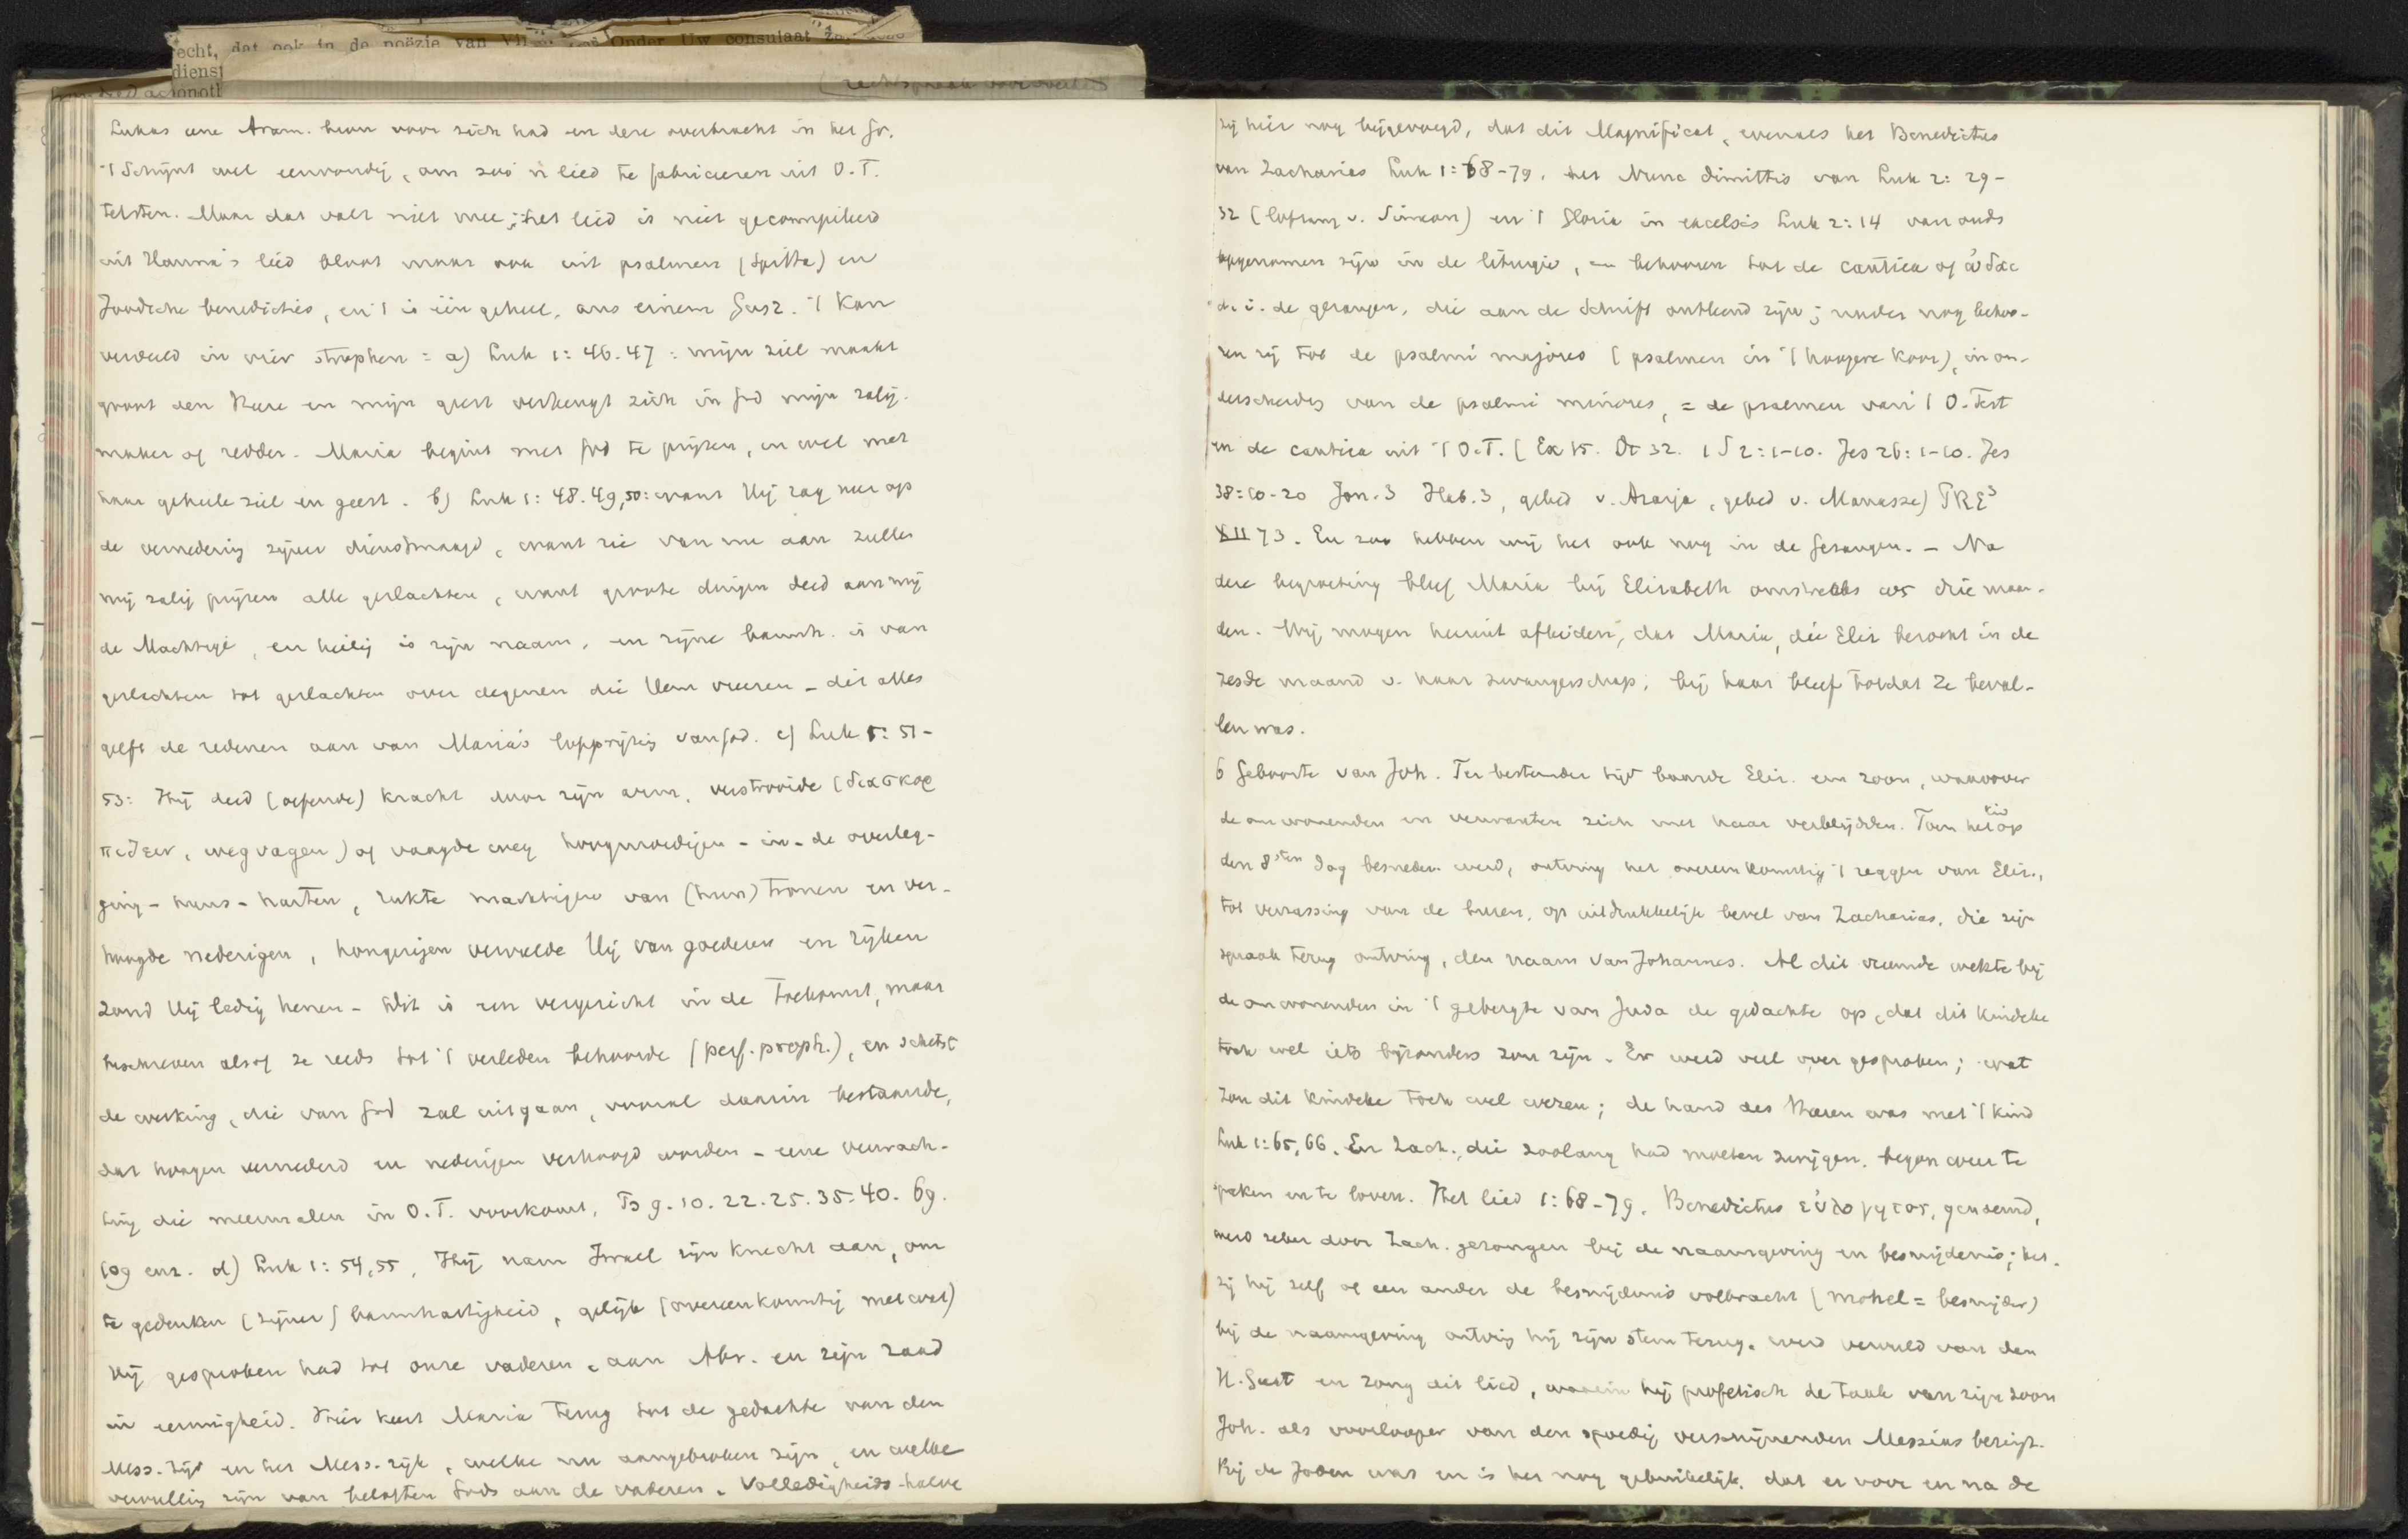 echt, dat ook in de poëzie van Onder Uw consulaat
dienst
Lukas eene Aram. bron voor zich had en deze overbracht in het Gr.
't Schijnt wel eenvoudig, om zoo'n lied te fabriceeren uit O.T.
teksten. Maar dat valt niet mee; het lied is niet gecompileerd
uit Hanna's lied maar ook uit psalmen (Spitta) en
Joodsche benedicties, en 't is één geheel, aus einem Gusz. 't Kan
verdeeld in vier strophen = a) Luk 1:46.47: mijn ziel maakt
groot den Heere en mijn geest verheugt zich in God mijn zalig-
maker of redder. Maria begint met God te prijzen, en wel met
haar geheele ziel en geest. b) Luk 1:48.49,50: want Hij zag neer op
de vernedering zijner dienstmaagd, want zie van nu aan zullen
mij zalig prijzen alle geslachten, want groote dingen deed aan mij
de Machtige, en heilig is zijn naam, en zijne barmh. is van
geslachten tot geslachten over degenen die Hem vreezen - dit alles
geeft de redenen aan van Maria's lofprijzing van God. c) Luk 1:51-
53: Hij deed (oefende) kracht door zijn arm, verstrooide (διασκορ
πιζειν, wegvagen) of vaagde weg hoogmoedigen - in - de overleg-
ging - huns - harten, rukte machtigen van (hun) tronen en ver-
hoogde nederigen, hongerigen vervulde Hij van goederen en rijken
zond Hij ledig henen - Dit is een vergezicht in de toekomst, maar
beschreven alsof ze reeds tot 't verleden behoorde (perf. proph.), en schetst
de werking, die van God zal uitgaan, vooral daarin bestaande,
dat hoogen vernederd en nederigen verhoogd worden - eene verwach-
ting die meermalen in O.T. voorkomt, Ps 9. 10. 22. 25. 35. 40. 69.
109 enz. d) Luk 1:54,55, Hij nam Israel zijn knecht aan, om
te gedenken (zijner) barmhartigheid, gelijk (overeenkomstig met wat)
Hij gesproken had tot onze vaderen, aan Abr. en zijn zaad
in eeuwigheid. Hier keert Maria terug tot de gedachte van den
Mess. tijd en het Mess. rijk, welke nu aangebroken zijn, en welke
vervulling zijn van beloften Gods aan de vaderen. Volledigheids-halve
zij hier nog bijgevoegd, dat dit Magnificat, evenals het Benedictus
van Zacharias Luk 1:68-79, het Nunc dimittis van Luk 2:29-
32 (lofzang v. Simeon) en 't Gloria in excelsis Luk 2:14 van ouds
opgenomen zijn in de liturgie, en behooren tot de cantica of
d.i. de gezangen, die aan de Schrift ontleend zijn; nader nog behoo-
ren zij tot de psalmi majores (psalmen in 't hoogere koor), in on-
derscheiding van de psalmi minores, = de psalmen van 't O. Test
en de cantica uit 't O.T. (Ex 15. Dt 32. 1 S 2:1-10. Jes 26:1-10. Jes
38:10-20 Jon. 3 Hab. 3, gebed v. Azarja, gebed v. Manasze) PRE³
XII 73. En zoo hebben wij het ook nog in de Gezangen. - Na
deze begroeting bleef Maria bij Elisabeth omstreeks ως drie maan-
den. Wij mogen hieruit afleiden, dat Maria, die Elis bezocht in de
zesde maand v. haar zwangerschap, bij haar bleef totdat ze beval-
len was.
6 Geboorte van Joh. Ter bestemder tijd baarde Elis. een zoon, waarover
de omwonenden en verwanten zich met haar verblijdden. Toen het kind op
den 8sten dag besneden werd, ontving het overeenkomstig 't zeggen van Elis.,
tot verrassing van de buren, op uitdrukkelijk bevel van Zacharias, die zijn
spraak terug ontving, den naam van Johannes. Al dit vreemde wekte bij
de omwonenden in 't gebergte van Juda de gedachte op, dat dit kindeke
toch wel iets bijzonders zou zijn. Er werd veel over gesproken; wat
zou dit kindeke toch wel wezen; de hand des Heeren was met 't kind
Luk 1:65,66. En Zach., die zoolang had moeten zwijgen, begon weer te
spreken en te loven. Het lied 1:68-79, Benedictus εὐλογητος, genoemd,
werd zeker door Zach. gezongen bij de naamgeving en besnijdenis; het-
zij hij zelf of een ander de besnijdenis volbracht (mohel = besnijder)
bij de naamgeving ontving hij zijn stem terug, werd vervuld van den
H. Geest en zong dit lied, waarin hij profetisch de taak van zijn zoon
Joh. als voorlooper van den spoedig verschijnenden Messias bezingt.
Bij de Joden was en is het nog gebruikelijk, dat er voor en na de